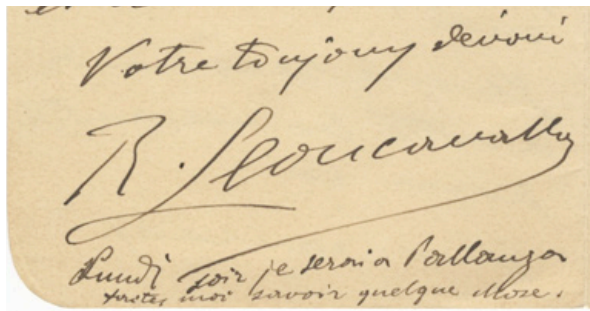 Votre toujours dévoué
R. Leoncavallo
Lundi soir je serai a Pallanza
faites moi savoir quelque chose.